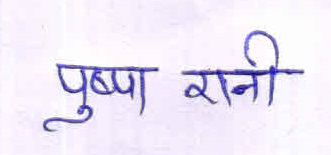 पुष्पा रानी